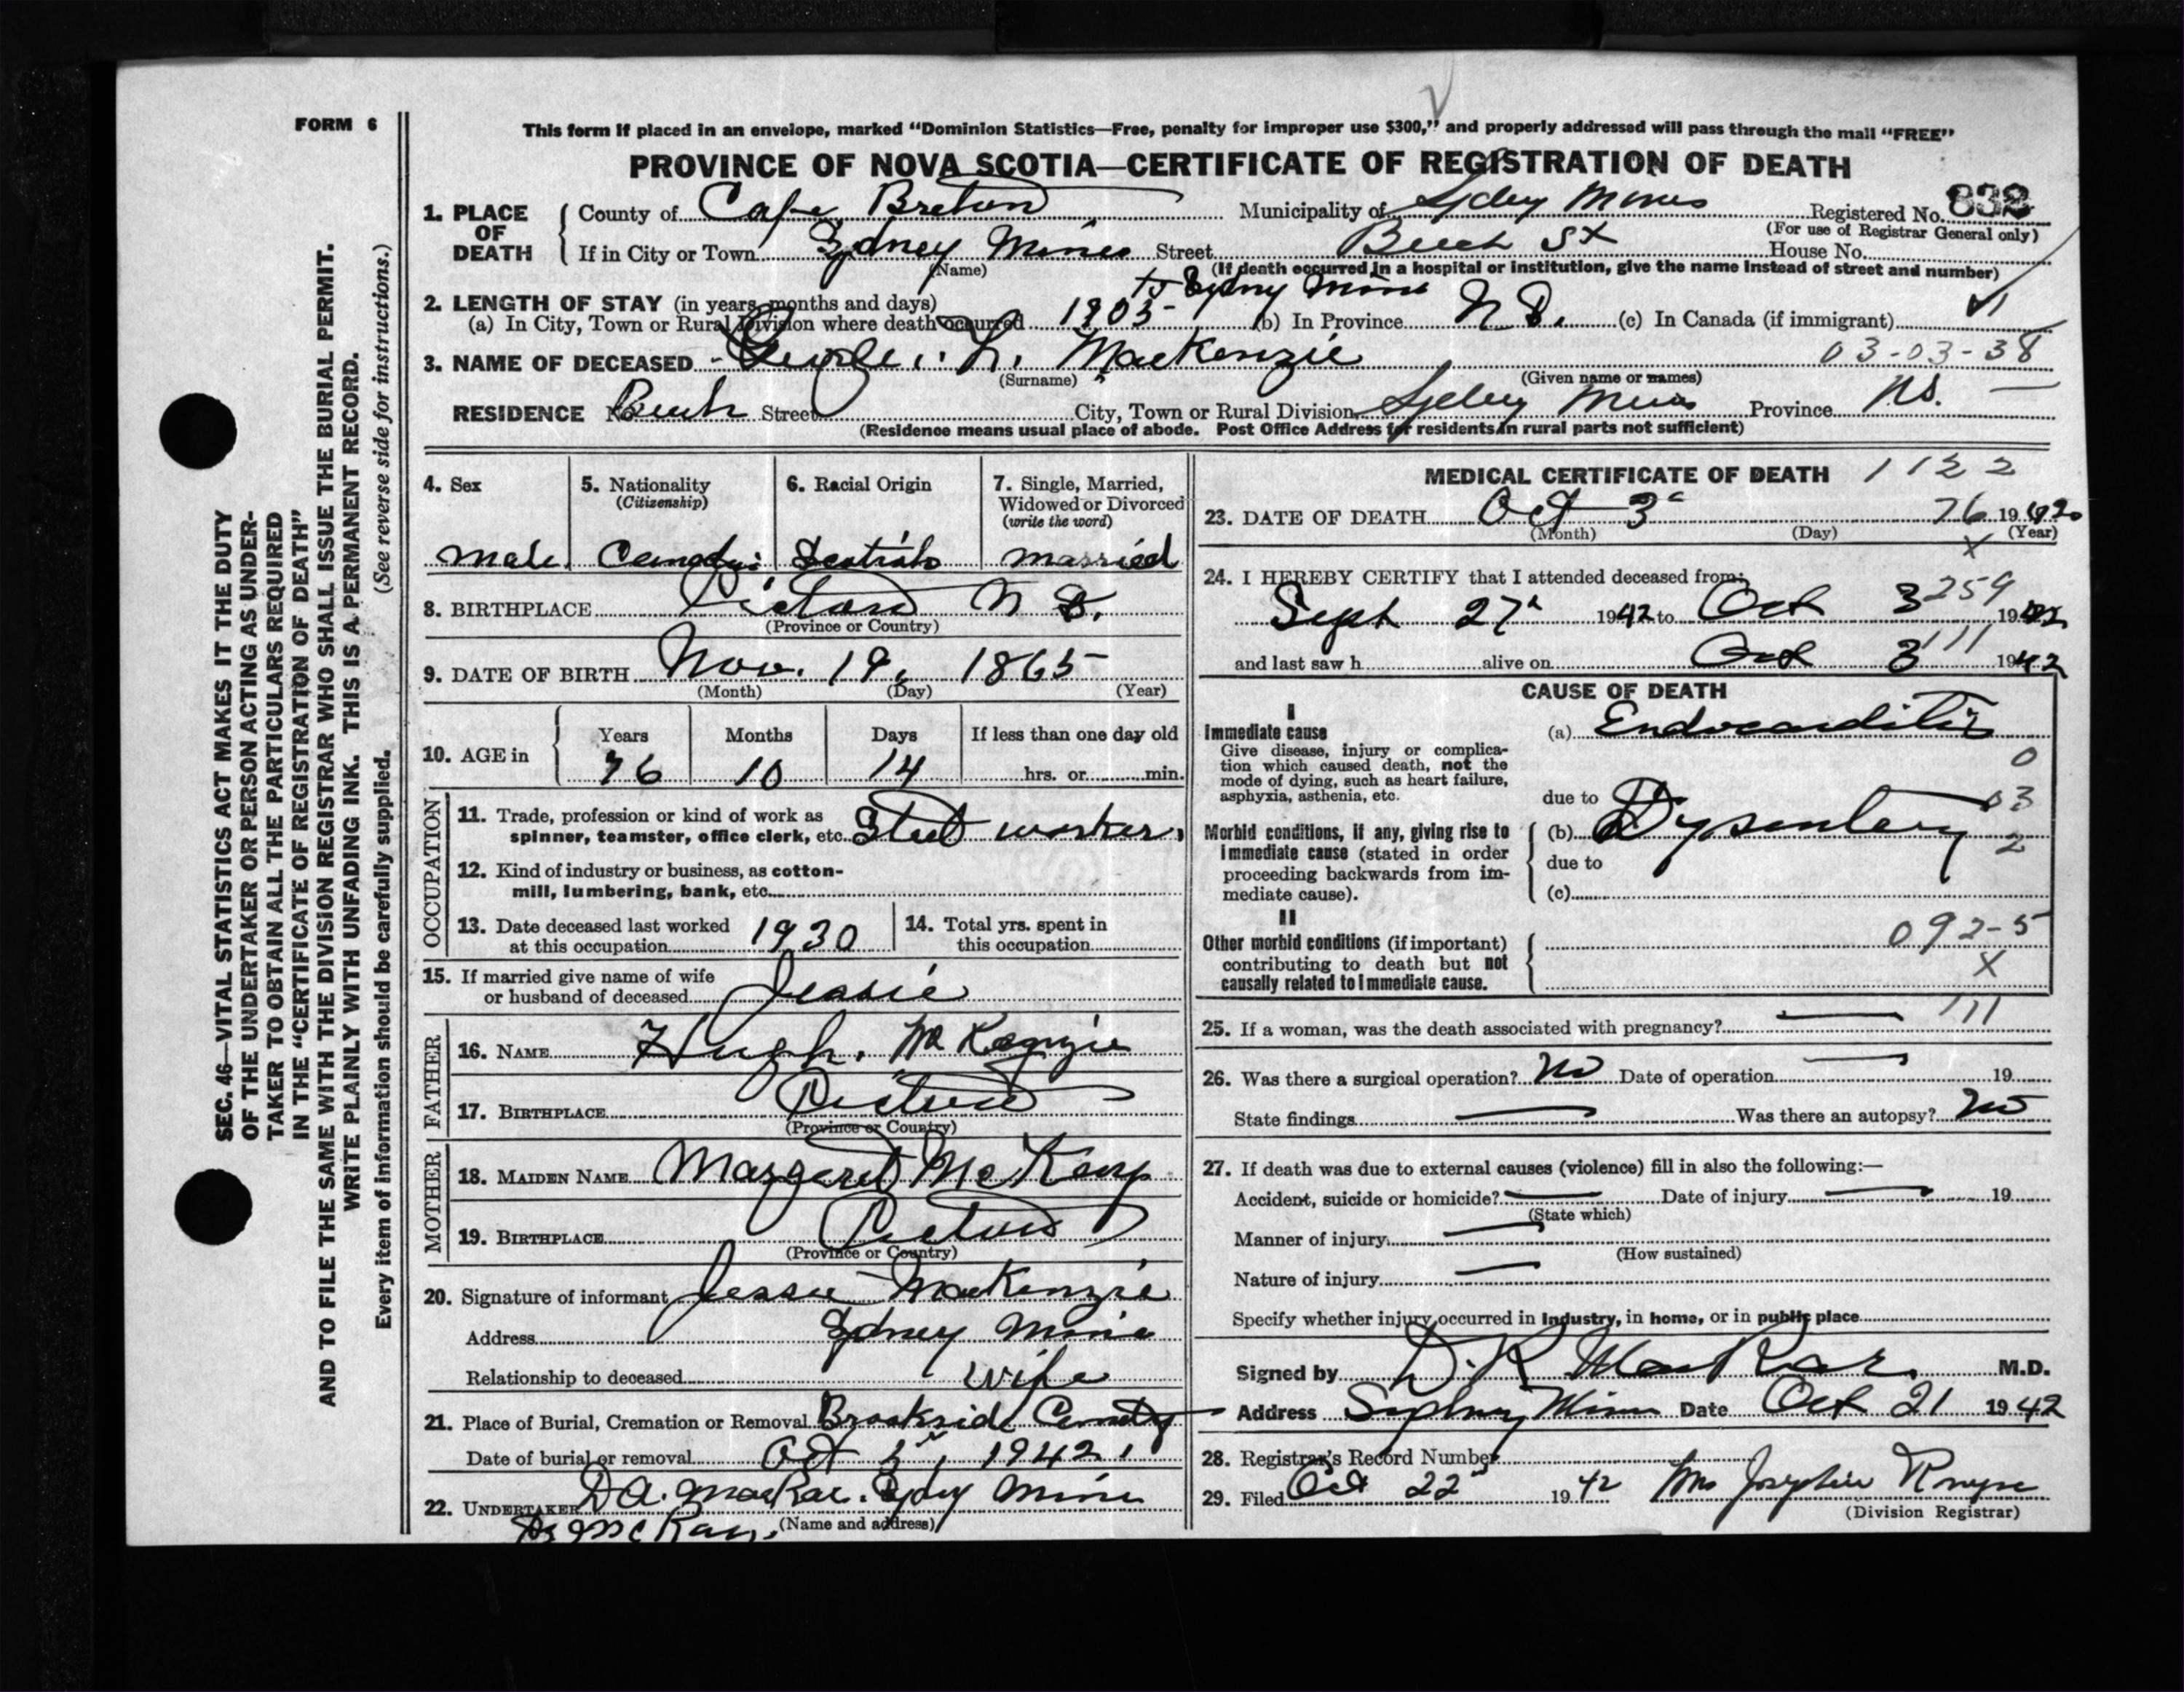 FORM 6
This form if placed in an envelope, marked "Dominion Statistics—Free, penalty for improper use $300," and properly addressed will pass through the mail "FREE"
PROVINCE OF NOVA SCOTIA—CERTIFICATE OF REGISTRATION OF DEATH
1. PLACE OF DEATH County of Cape Breton Municipality of Sydney Mines Registered No. 832
(For use of Registrar General only)
If in City or Town Sydney Mines Street Beech St House No.
(Name) (If death occurred in a hospital or institution, give the name instead of street and number)
2. LENGTH OF STAY (in years, months and days) to Sydney Mines
(a) In City, Town or Rural Division where death occurred 1903 (b) In Province N S. (c) In Canada (if immigrant)
3. NAME OF DECEASED George . MacKenzie 03-03-38
(Surname) (Given name or names)
RESIDENCE No. Beech Street City, Town or Rural Division Sydney Mines Province N.S.
(Residence means usual place of abode. Post Office Address for residents in rural parts not sufficient)
4. Sex
male
5. Nationality
(Citizenship)
6. Racial Origin
Scotish
7. Single, Married,
Widowed or Divorced
(write the word)
married
8. BIRTHPLACE Pictou N S.
(Province or Country)
9. DATE OF BIRTH Nov. 19, 1865
(Month) (Day) (Year)
10. AGE in Years Months Days If less than one day old
76 10 14 hrs. or min.
OCCUPATION
11. Trade, profession or kind of work as
spinner, teamster, office clerk, etc. Steel worker,
12. Kind of industry or business, as cotton-
mill, lumbering, bank, etc.
13. Date deceased last worked
at this occupation 1930
14. Total yrs. spent in
this occupation
15. If married give name of wife
or husband of deceased Jessie
FATHER
16. NAME Hugh. McKenzie
17. BIRTHPLACE Pictou
(Province or Country)
MOTHER
18. MAIDEN NAME Margaret
19. BIRTHPLACE Pictou
(Province or Country)
20. Signature of informant Jessie MacKenzie
Address Sydney Mines
Relationship to deceased wife
21. Place of Burial, Cremation or Removal Brookside Cemetery
Date of burial or removal Oct 1942
22. UNDERTAKER D A. MacRae. Sydney Mines
(Name and address)
MEDICAL CERTIFICATE OF DEATH 1122
23. DATE OF DEATH Oct 3 76 1942
(Month) (Day) (Year)
X
24. I HEREBY CERTIFY that I attended deceased from: 259
Sept 27 1942 to Oct 3 1942
111
and last saw h alive on Oct 3 1942
CAUSE OF DEATH
I
Immediate cause
Give disease, injury or complica-
tion which caused death, not the
mode of dying, such as heart failure,
asphyxia, asthenia, etc.
(a) Endocarditis
0
due to 03
Morbid conditions, if any, giving rise to
immediate cause (stated in order
proceeding backwards from im-
mediate cause).
(b) Dysentery
2
due to
(c)
II
Other morbid conditions (if important)
contributing to death but not
causally related to immediate cause.
092-5
X
25. If a woman, was the death associated with pregnancy? — 111
26. Was there a surgical operation? No Date of operation — 19
State findings — Was there an autopsy? No
27. If death was due to external causes (violence) fill in also the following:—
Accident, suicide or homicide? — Date of injury — 19
(State which)
Manner of injury —
(How sustained)
Nature of injury —
Specify whether injury occurred in Industry, in home, or in public place
Signed by D. K MacRae. M.D.
Address Sydney Mines Date Oct 21 1942
28. Registrar's Record Number
29. Filed Oct 22 1942 Mrs Josephine
(Division Registrar)
SEC. 46—VITAL STATISTICS ACT MAKES IT THE DUTY
OF THE UNDERTAKER OR PERSON ACTING AS UNDER-
TAKER TO OBTAIN ALL THE PARTICULARS REQUIRED
IN THE "CERTIFICATE OF REGISTRATION OF DEATH"
AND TO FILE THE SAME WITH THE DIVISION REGISTRAR WHO SHALL ISSUE THE BURIAL PERMIT.
WRITE PLAINLY WITH UNFADING INK. THIS IS A PERMANENT RECORD.
Every item of information should be carefully supplied. (See reverse side for instructions.)